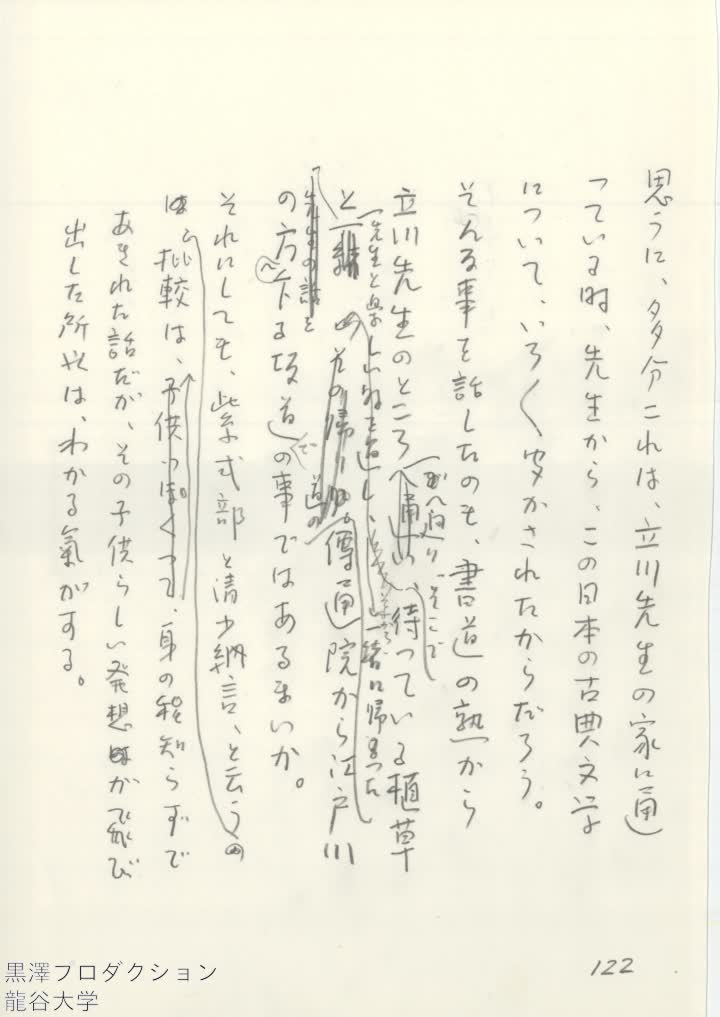 思うに、多分これは、立川先生の家に通
っている時、先生から、この日本の古典文学
について、いろ〱聞かされたからだろう。
そんな事を話したのも、書道の塾から
立川先生のところへ通い、待っている植草
が、そこで
と一緒
一緒に帰った
その帰り、傳通院から江戸川
先生の話を
の方へ下る坂道での事ではあるまいか。
それにしても、紫式部と清少納言、と云うの
は、比較は、子供っぽくって、身の程知らずで
あきれた話だが、その子供らしい発想が飛び
出した所以は、わかる氣がする。
122
黒澤プロダクション
龍谷大学